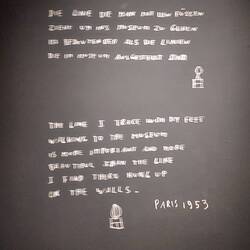 DIE LINIE DIE MAN MIT DEN FÜSSEN
ZIEHT UM INS MUSEUM ZU GEHEN
IST BEDEUTENDER ALS DIE LINIEN
DIE IM MUSEUM AUSGESTELLT SIND
THE LINE I TRACE WITH MY FEET
WALKING TO THE MUSEUM
IS MORE IMPORTANT AND MORE
BEAUTIFUL THAN THE LINE
I FIND THERE HUNG UP
ON THE WALLS.
PARIS 1953